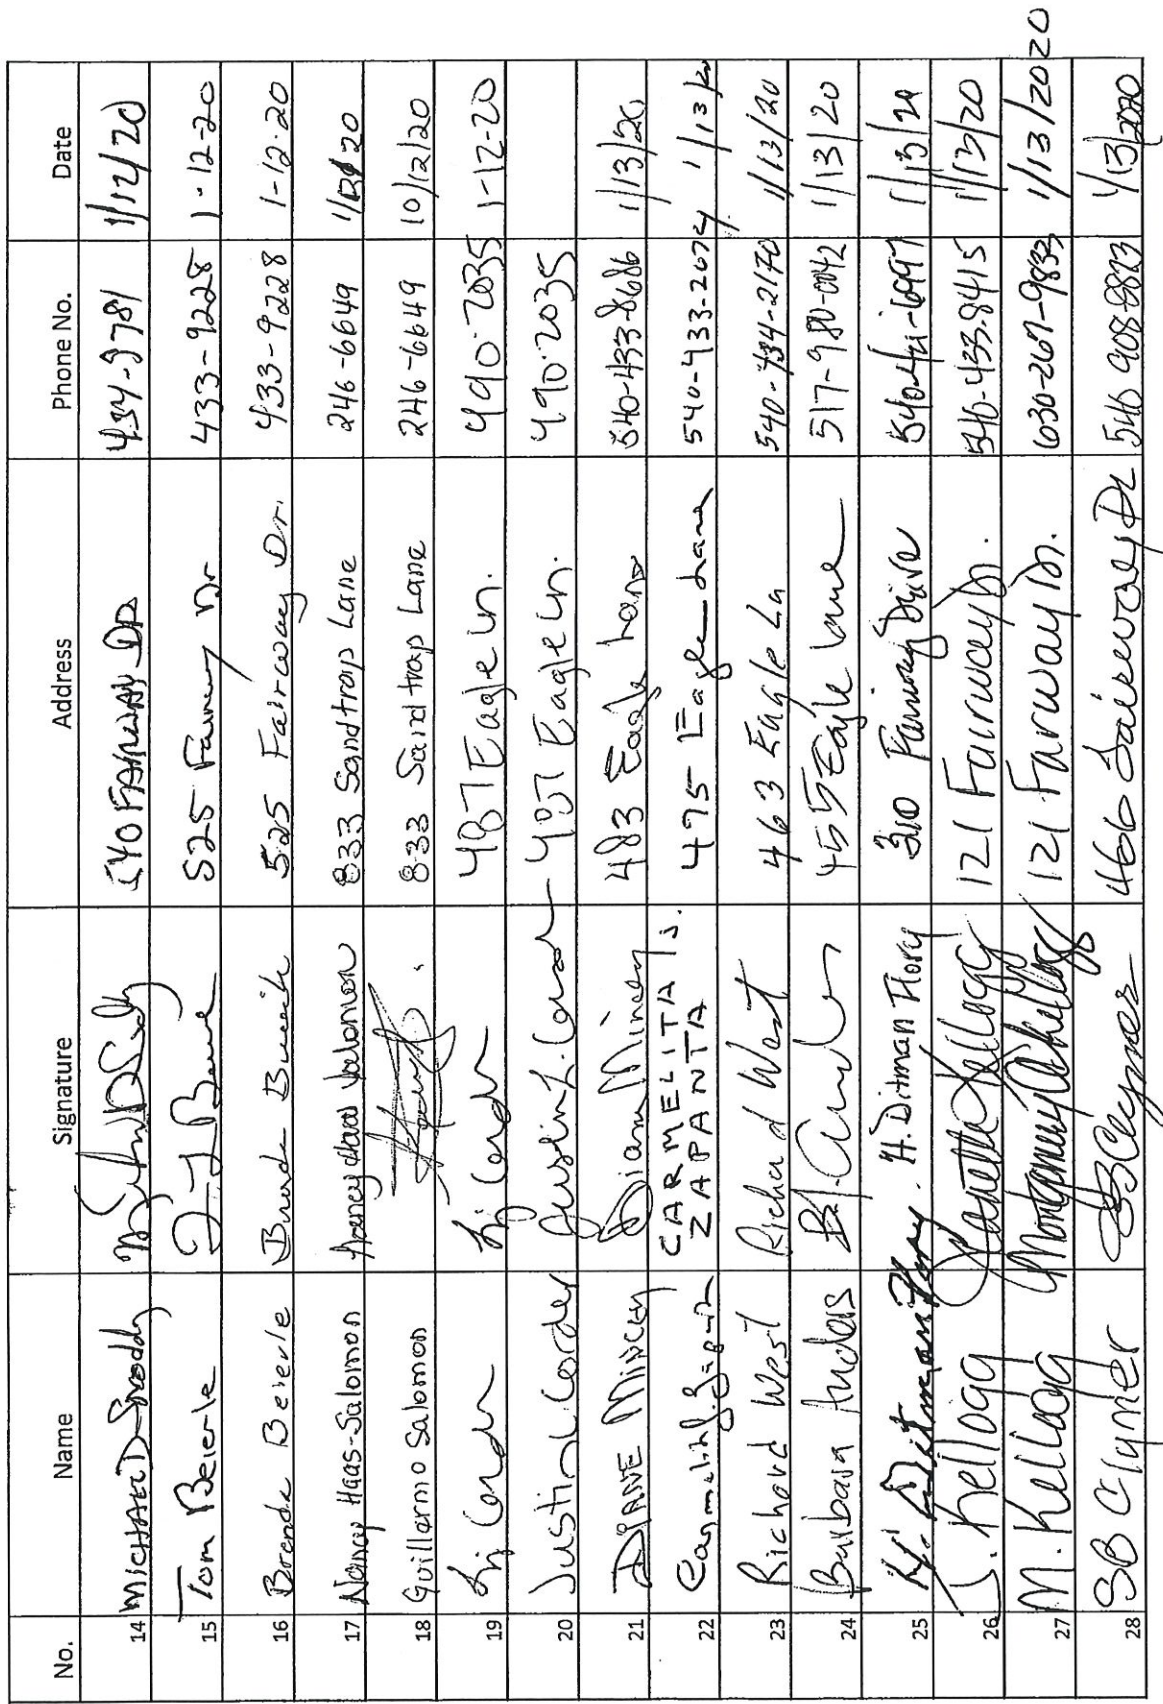 No. Name Signature Address Phone No. Date
14 MICHAEL D Snoddy 540 FAIRWAY DR 434-2781 1/12/20
15 Tom Beierle 525 Fairway Dr 433-9228 1-12-20
16 Brenda Beierle 525 Fairway Dr. 433-9228 1-12-20
17 Nancy Haas-Salomon Nancy Haas Salomon 833 Sandtrap Lane 246-6649 20
18 Guillermo Salomon 833 Sand trap Lane 246-6649 10/12/20
19 487 Eagle Ln. 490-2035 1-12-20
20 Justin Corder Justin L. Corder 487 Eagle Ln. 490-2035
21 DIANE MINCEY Diane Mincey 483 Eagle Lane 540-433-8686 1/13/20
22 CARMELITA S. ZAPANTA 475 Eagle Lane 540-433-2674 1/13/20
23 Richard West Richard West 463 Eagle La 540-434-2170 1/13/20
24 Barbara 455 Eagle Lane 517-980-0042 1/13/20
25 H. Ditman Flory H. Ditman Flory 310 Fairway Drive 1/13/20
26 J. Kellogg Janette Kellogg 121 Fairway Dr. 540-433-8415 1/13/20
27 M. Kellogg Montgomery Kellogg 121 Fairway Dr. 630-267-9833 1/13/2020
28 SB Clymer SB Clymer 466 Fairway Dr 540 908-8873 1/13/2020